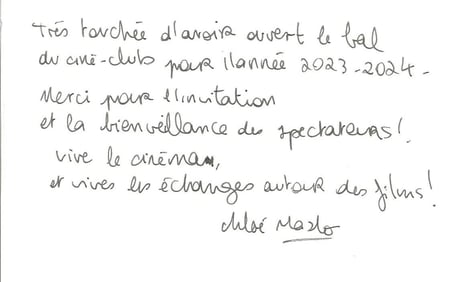 Très touchée d'avoir ouvert le bal
du ciné-club pour l'année 2023-2024-
Merci pour l'invitation
et la bienveillance des spectateurs!
vive le cinéma,
et vives les échanges autour des films!
Chloé Mazlo